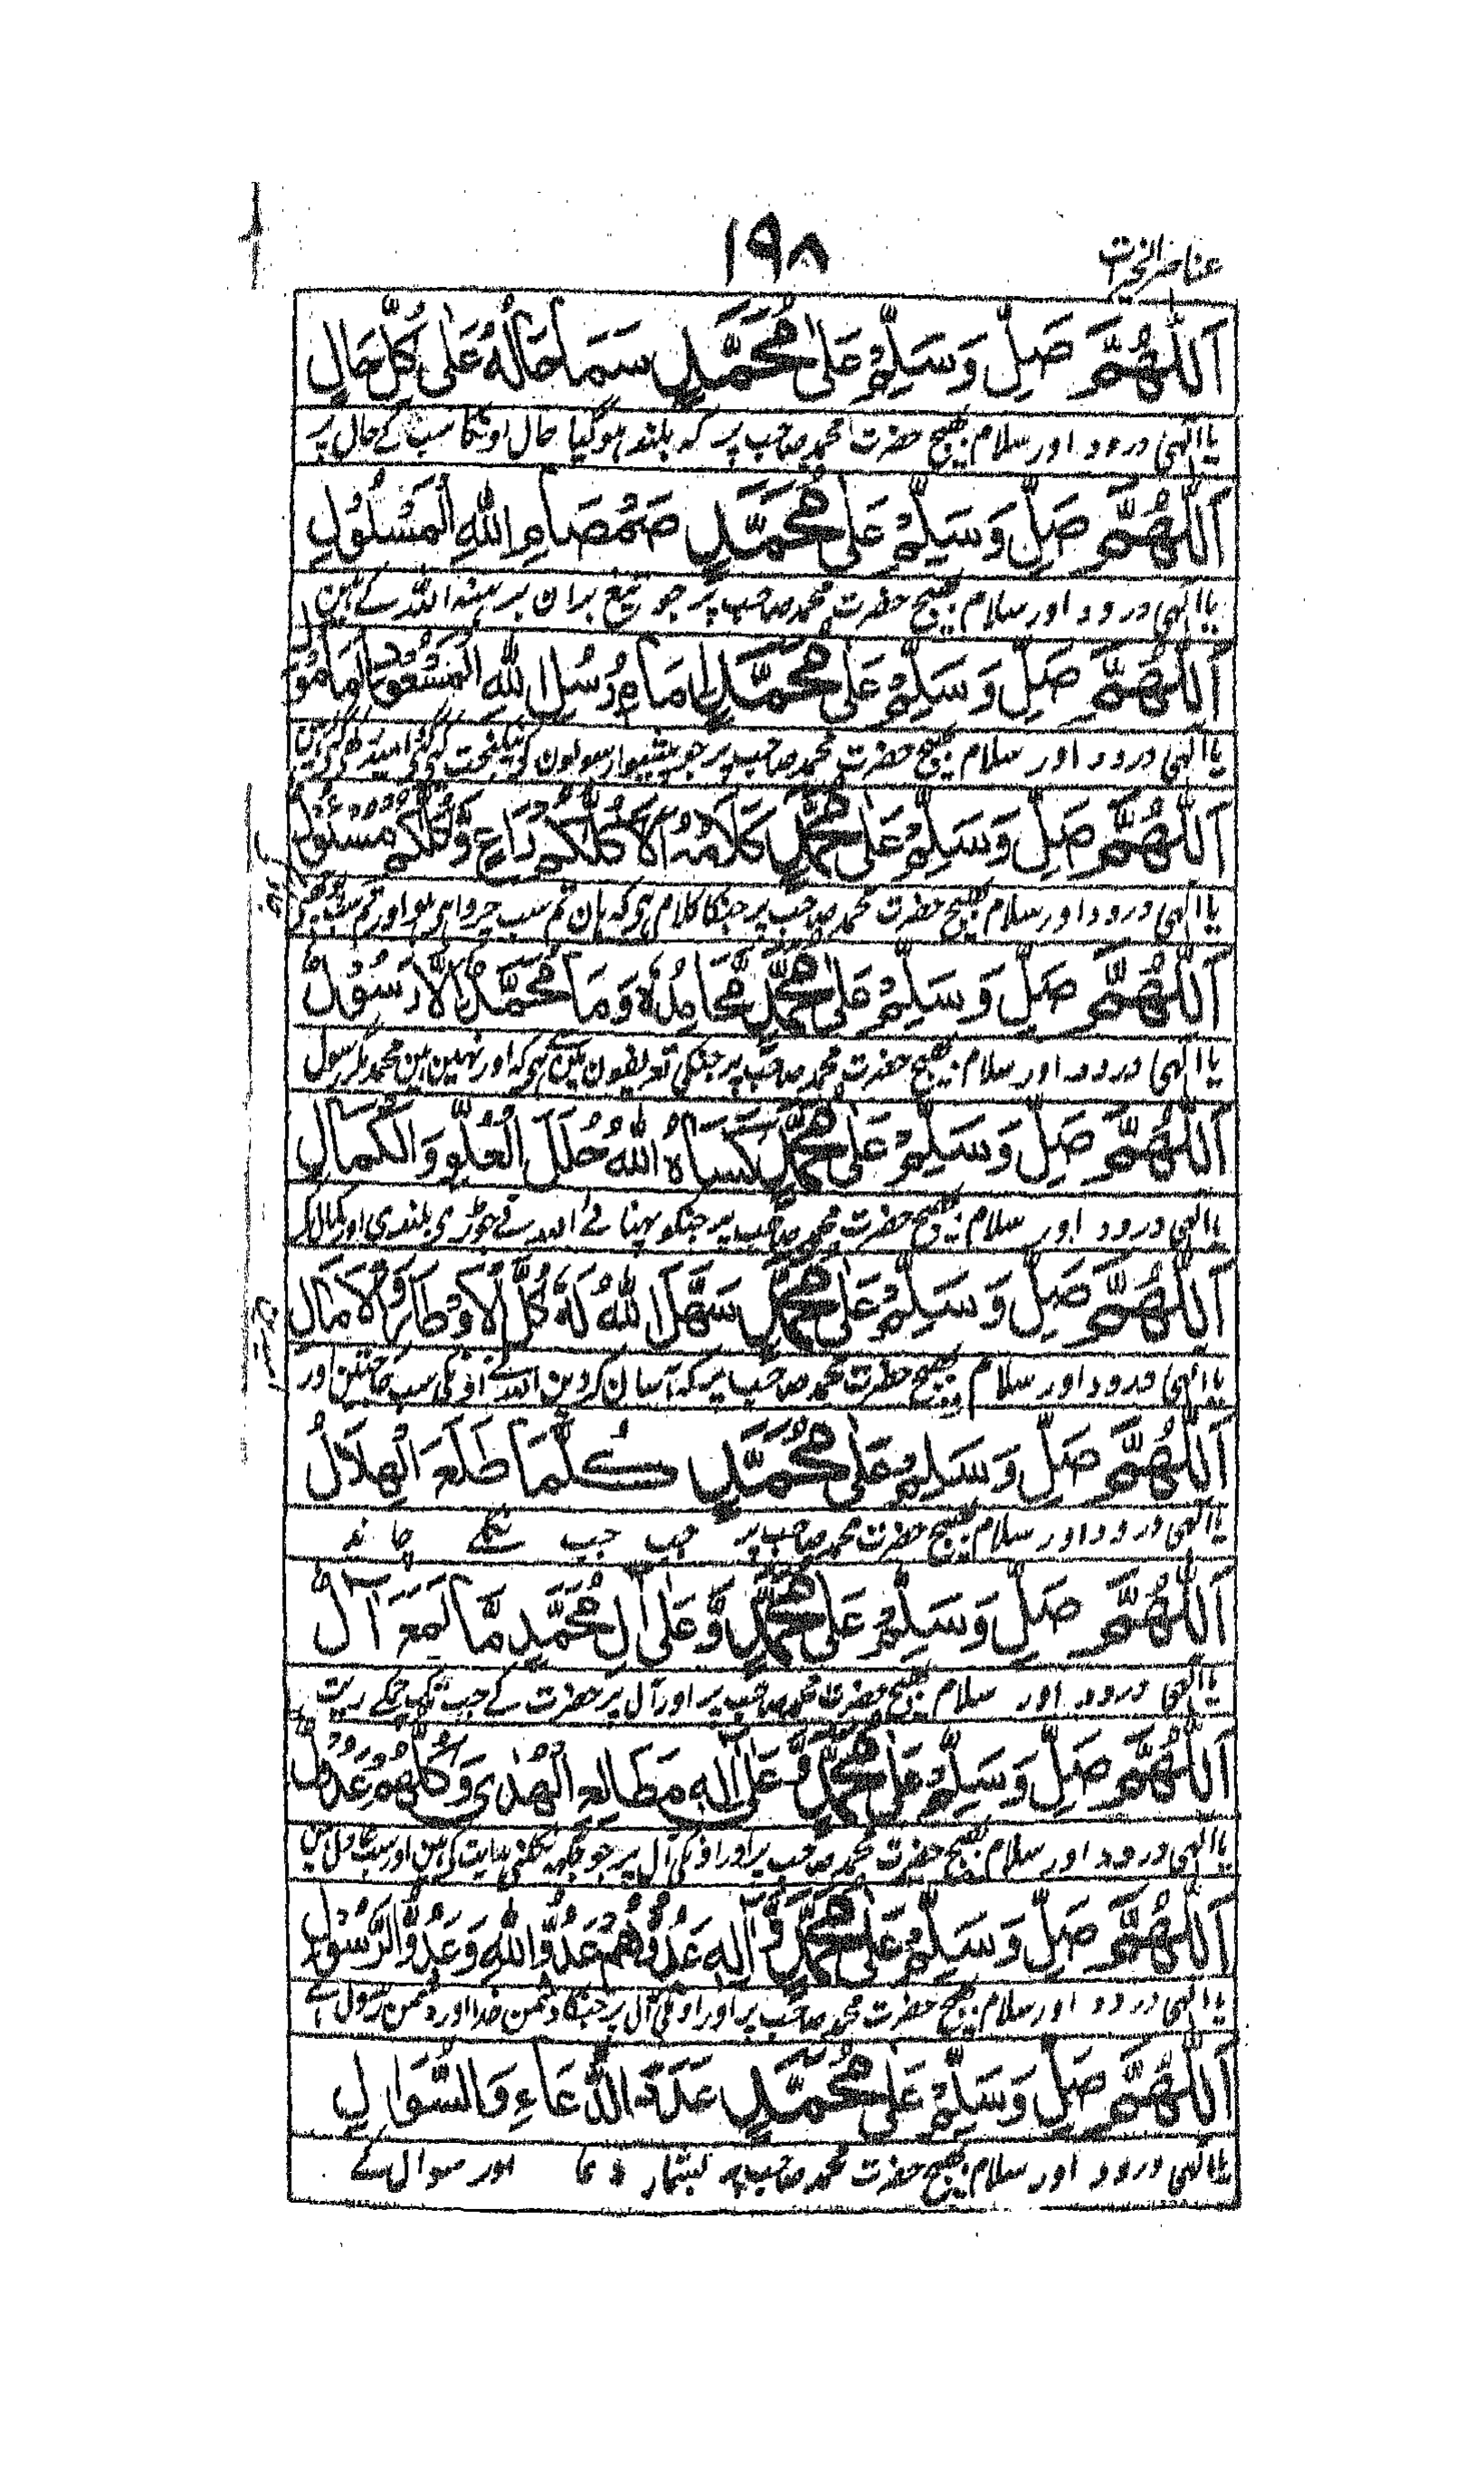 عناصر الخیرات
١٩٨
اَللّٰهُمَّ صَلِّ وَسَلِّمْ عَلٰى مُحَمَّدٍ سَمَا حَالُهُ عَلٰى كُلِّ حَالٍ
یا الٰہی درود اور سلام بھیج حضرت محمد صاحب پر کہ بلند ہوگیا حال اونکا سب کے حال پر
اَللّٰهُمَّ صَلِّ وَسَلِّمْ عَلٰى مُحَمَّدٍ صَمْصَامِ اللهِ الْمَسْلُوْلِ
یا الٰہی درود اور سلام بھیج حضرت محمد صاحب پر جو تیغ بران برہنہ اللہ کے ہین
اَللّٰهُمَّ صَلِّ وَسَلِّمْ عَلٰى مُحَمَّدٍ اِمَامِ رُسُلِ اللهِ الْمَسْعُوْدِ الْمَامُوْلِ
یا الٰہی درود اور سلام بھیج حضرت محمد صاحب پر جو پیشوا رسولون
اَللّٰهُمَّ صَلِّ وَسَلِّمْ عَلٰى مُحَمَّدٍ كَلَامُهٗ اَلَا كُلُّكُمْ رَاعٍ وَّكُلُّكُمْ مَسْئُوْلٌ
یا الٰہی درود اور سلام بھیج حضرت محمد صاحب پر جنکا کلام ہی کہ ہان تم سب چرواہی ہو اور تم سب
اَللّٰهُمَّ صَلِّ وَسَلِّمْ عَلٰى مُحَمَّدٍ مَّحَامِدُهٗ وَمَا مُحَمَّدٌ اِلَّا رَسُوْلٌ
یا الٰہی درود اور سلام بھیج حضرت محمد صاحب پر جنکی تعریفون مین ہی کہ اور نہین ہین محمد مگر رسول
اَللّٰهُمَّ صَلِّ وَسَلِّمْ عَلٰى مُحَمَّدٍ كَسَاهُ اللهُ حُلَلَ الْعُلُوِّ وَالْكَمَالِ
یا الٰہی درود اور سلام بھیج حضرت محمد صاحب پر جنکو پہنائے اللہ نے جوڑی بلندی اور کمال کے
اَللّٰهُمَّ صَلِّ وَسَلِّمْ عَلٰى مُحَمَّدٍ سَهَّلَ اللهُ لَهٗ كُلَّ الْاَوْطَارِ وَالْاٰمَالِ
یا الٰہی درود اور سلام بھیج حضرت محمد صاحب پر کہ آسان کردین اللہ نے اونکی سب حاجتین اور
اَللّٰهُمَّ صَلِّ وَسَلِّمْ عَلٰى مُحَمَّدٍ كُلَّمَا طَلَعَ الْهِلَالُ
یا الٰہی درود اور سلام بھیج حضرت محمد صاحب پر جب جب نکلے چاند
اَللّٰهُمَّ صَلِّ وَسَلِّمْ عَلٰى مُحَمَّدٍ وَّعَلٰى اٰلِ مُحَمَّدٍ مَّا لَمَعَ اٰلٌ
یا الٰہی درود اور سلام بھیج حضرت محمد صاحب پر اور آل پر حضرت کے جب تک چمکے ریت
اَللّٰهُمَّ صَلِّ وَسَلِّمْ عَلٰى مُحَمَّدٍ وَّعَلٰى اٰلِهٖ مَطَالِعِ الْهُدٰى وَكُلُّهُمْ عُدُوْلٌ
یا الٰہی درود اور سلام بھیج حضرت محمد صاحب پر اور اونکی آل پر جو جگہہ نکلنے ہدایت کی ہین اور سب عادل ہین
اَللّٰهُمَّ صَلِّ وَسَلِّمْ عَلٰى مُحَمَّدٍ وَّاٰلِهٖ عَدُوُّهُمْ عَدُوُّ اللهِ وَعَدُوُّ الرَّسُوْلِ
یا الٰہی درود اور سلام بھیج حضرت محمد صاحب پر اور اونکی آل پر جنکا دشمن خدا اور دشمن رسول ہے
اَللّٰهُمَّ صَلِّ وَسَلِّمْ عَلٰى مُحَمَّدٍ عَدَدَ الدُّعَاءِ وَالسُّوَالِ
یا الٰہی درود اور سلام بھیج حضرت محمد صاحب پر بشمار دعا اور سوال کے